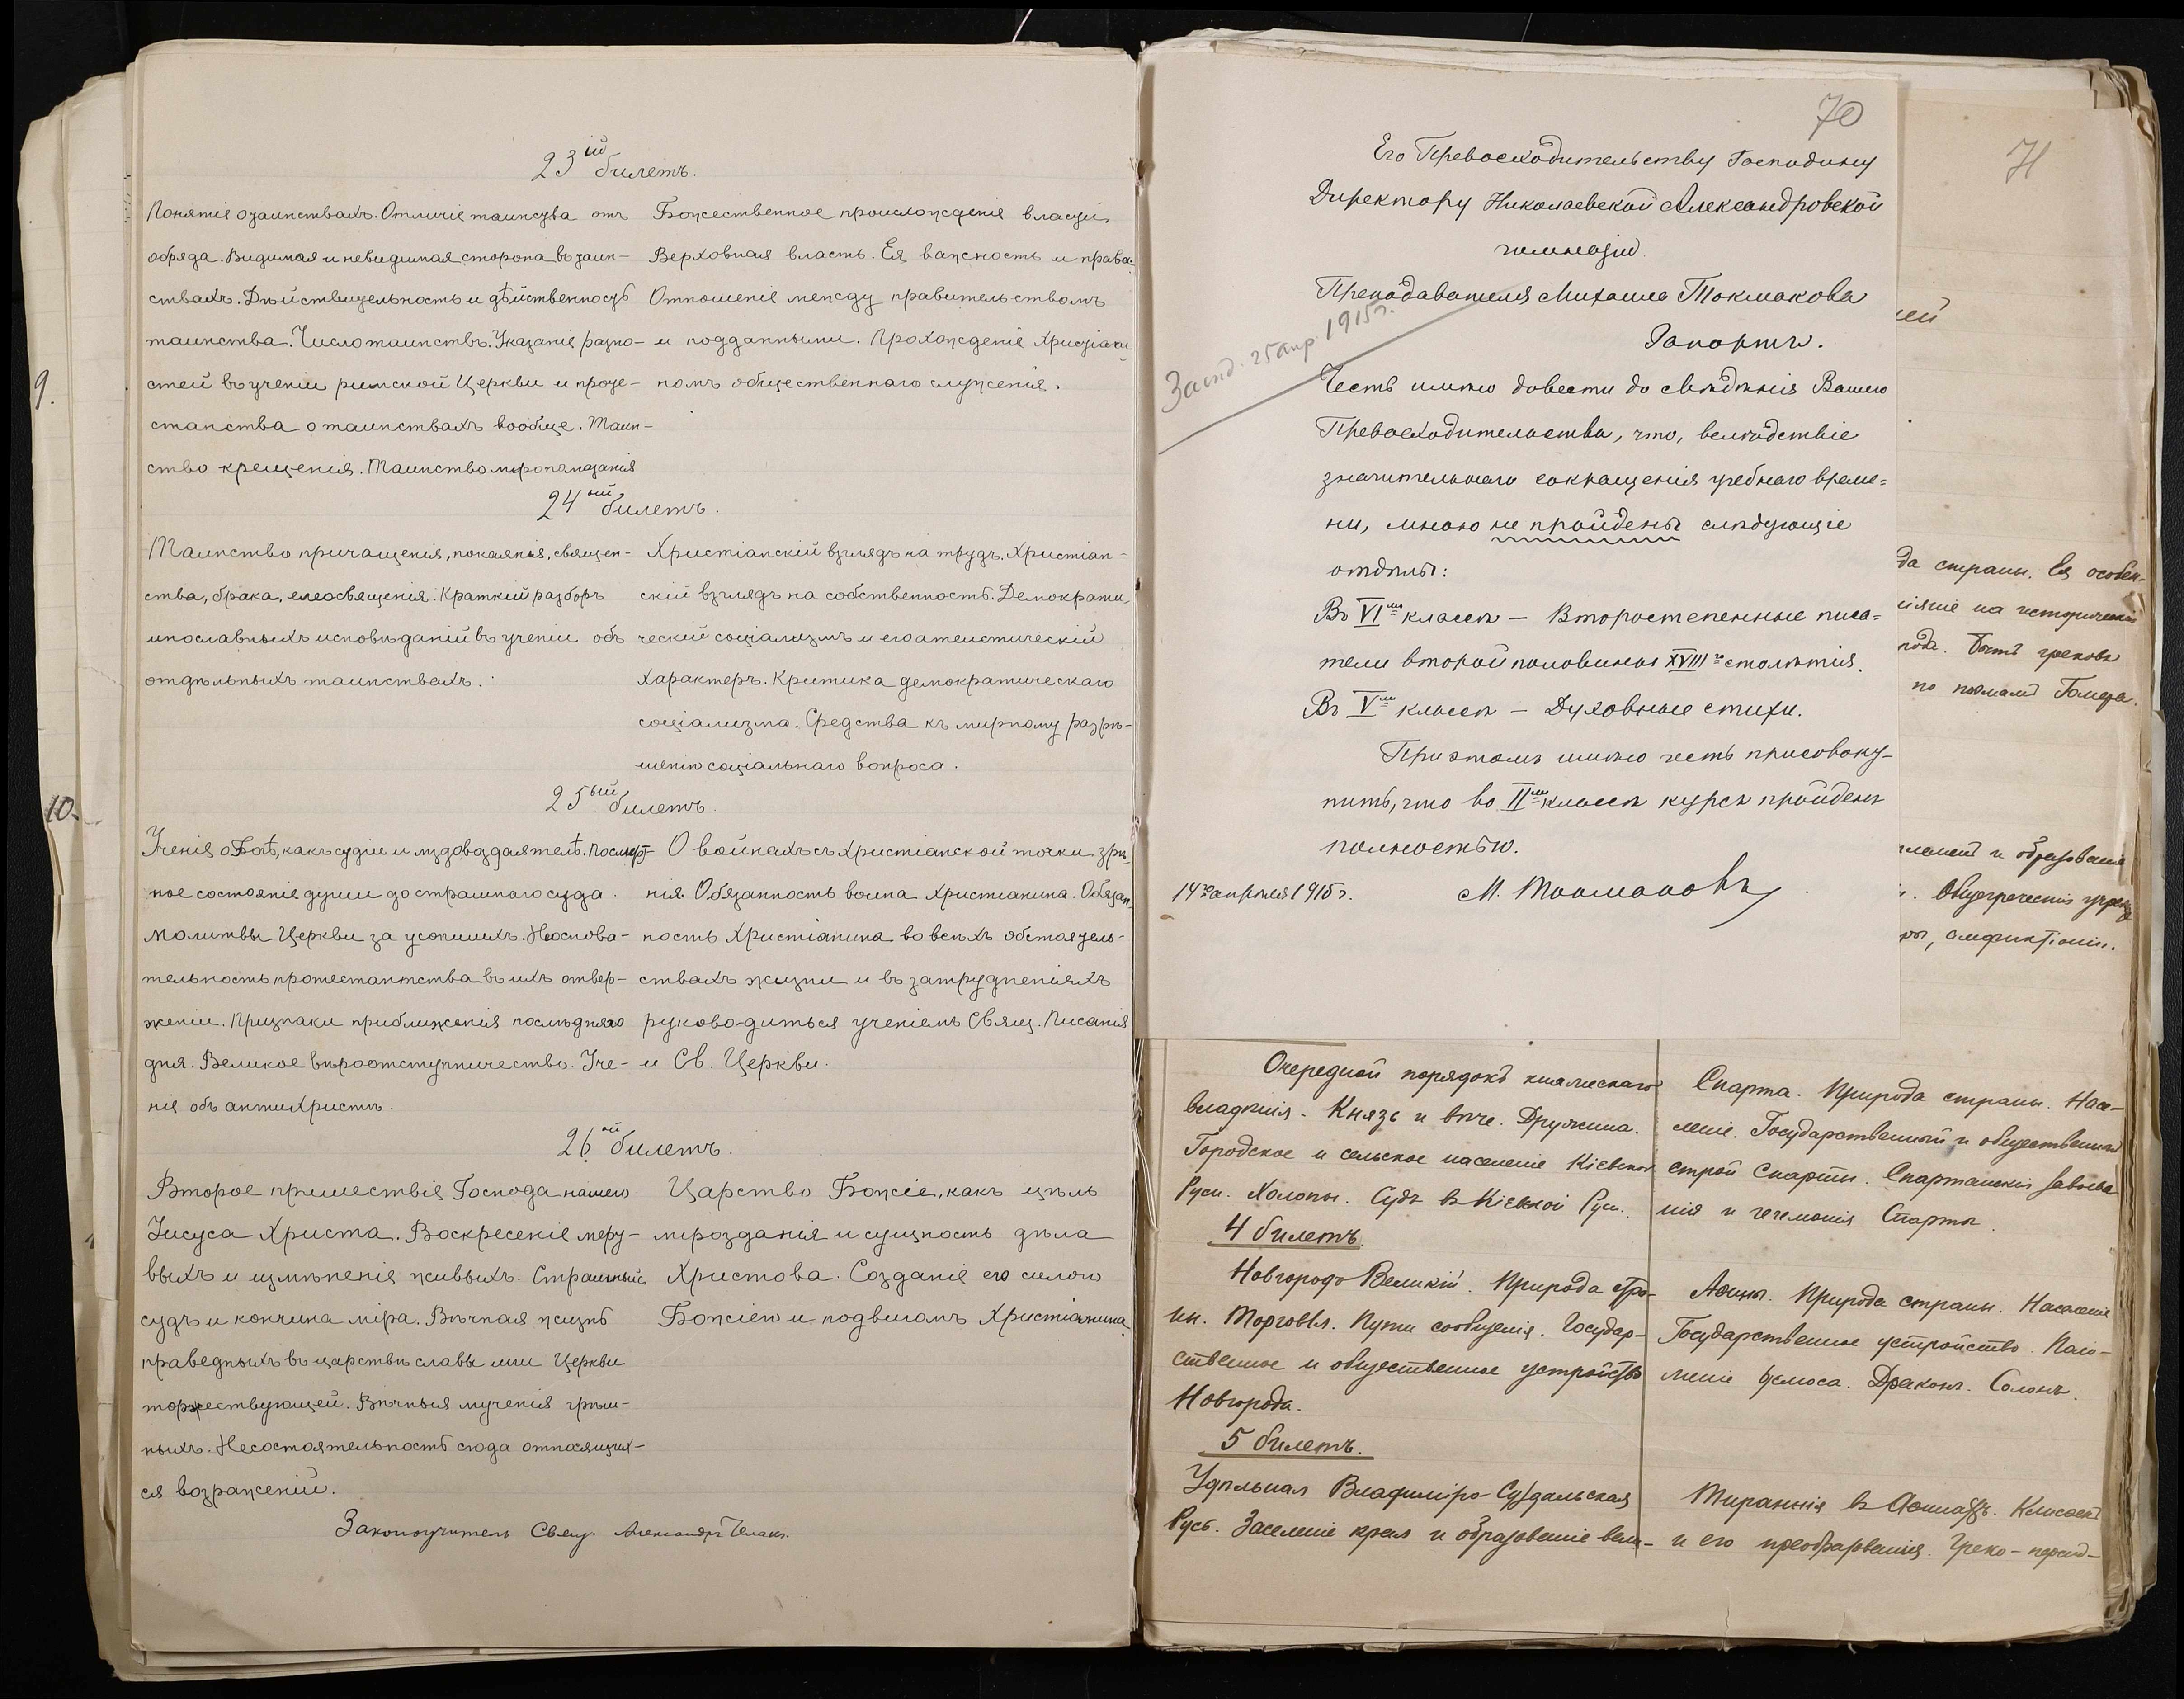 9.
10.
23ій билетъ.
Понятіе о таинствахъ. Отличіе таинства отъ
обряда. Видимая и невидимая сторона въ таин-
ствахъ. Дѣйствительность и дѣйственность
таинства. Число таинствъ. Указаніе разно-
стей въ ученіи римской Церкви и проте-
станства о таинствахъ вообще. Таин-
ство крещенія. Таинство мѵропомазанія
Божественное происхожденіе власти.
Верховная власть. Ея важность и права.
Отношеніе между правительствомъ
и подданными. Прохожденіе христіани-
номъ общественнаго служенія.
24ый билетъ.
Таинство причащенія, покаянія, священ-
ства, брака, елеосвященія. Краткій разборъ
инославныхъ исповѣданій въ ученіи объ
отдѣльныхъ таинствахъ.
Христіанскій взглядъ на трудъ. Христіан-
скій взглядъ на собственность. Демократи-
ческій соціализмъ и его атеистическій
характеръ. Критика демократическаго
соціализма. Средства къ мирному разрѣ-
шенію соціальнаго вопроса.
25ый билетъ.
Ученіе о Богѣ, какъ судіи и мздовоздаятелѣ. Посмерт-
ное состояніе души до страшнаго суда.
Молитвы Церкви за усопшихъ. Неоснова-
тельность протестантства въ ихъ отвер-
женіи. Признаки приближенія послѣдняго
дня. Великое вѣроотступничество. Уче-
ніе объ антихристѣ.
О войнахъ съ христіанской точки зрѣ-
нія. Обязанность воина христіанина. Обязан-
ность христіанина во всѣхъ обстоятель-
ствахъ жизни и въ затрудненіяхъ
руководиться ученіемъ Свящ. Писанія
и Св. Церкви.
26ой билетъ.
Второе пришествіе Господа нашего
Іисуса Христа. Воскресеніе мерт-
выхъ и измѣненіе живыхъ. Страшный
судъ и кончина міра. Вѣчная жизнь
праведныхъ въ царствѣ славы или Церкви
торжествующей. Вѣчныя мученія грѣш-
ныхъ. Несостоятельность сюда относящих-
ся возраженій.
Царство Божіе, какъ цѣль
мірозданія и сущность дѣла
Христова. Созданіе его силою
Божіею и подвигомъ христіанина.
Законоучитель Свящ. Александръ
70
Его Превосходительству Господину
Директору Николаевской Александровской
гимназіи
Преподавателя Михаила Токмакова
Рапортъ.
25 апр. 1915 г.
Честь имѣю довести до свѣдѣнія Вашего
Превосходительства, что, вслѣдствіе
значительнаго сокращенія учебнаго време-
ни, мною не пройдены слѣдующіе
отдѣлы:
Въ VIмъ классѣ – Второстепенные писа-
тели второй половины XVIIIго столѣтія.
Въ Vмъ классѣ – Духовные стихи.
При этомъ имѣю честь присовоку-
пить, что во IIмъ классѣ курсъ пройденъ
полностью.
14го апрѣля 1915 г. М. Токмаковъ
71
ей
да страны. Ея особен-
іяніе на историческ
рода. Бытъ грековъ
по поэмамъ Гомера.
племенъ и образованія
Общегреческія учрежд
ры, амфиктіоніи.
Очередной порядокъ княжескаго
владѣнія. Князь и вѣче. Дружина.
Городское и сельское населеніе Кіевской
Руси. Холопы. Судъ въ Кіевской Руси.
Спарта. Природа страны. Насе-
леніе. Государственный и общественный
строй Спарты. Спартанскія завоева
нія и гегемонія Спарты.
4 билетъ.
Новгородъ Великій. Природа стра-
ны. Торговля. Пути сообщенія. Государ-
ственное и общественное устройство
Новгорода.
Аѳины. Природа страны. Населеніе
Государственное устройство. Поло-
женіе демоса. Драконъ. Солонъ.
5 билетъ.
Удѣльная Владиміро-Суздальская
Русь. Заселеніе края и образованіе вели-
Тираннія въ Аѳинахъ. Клисѳенъ
и его преобразованія. Греко-персид-